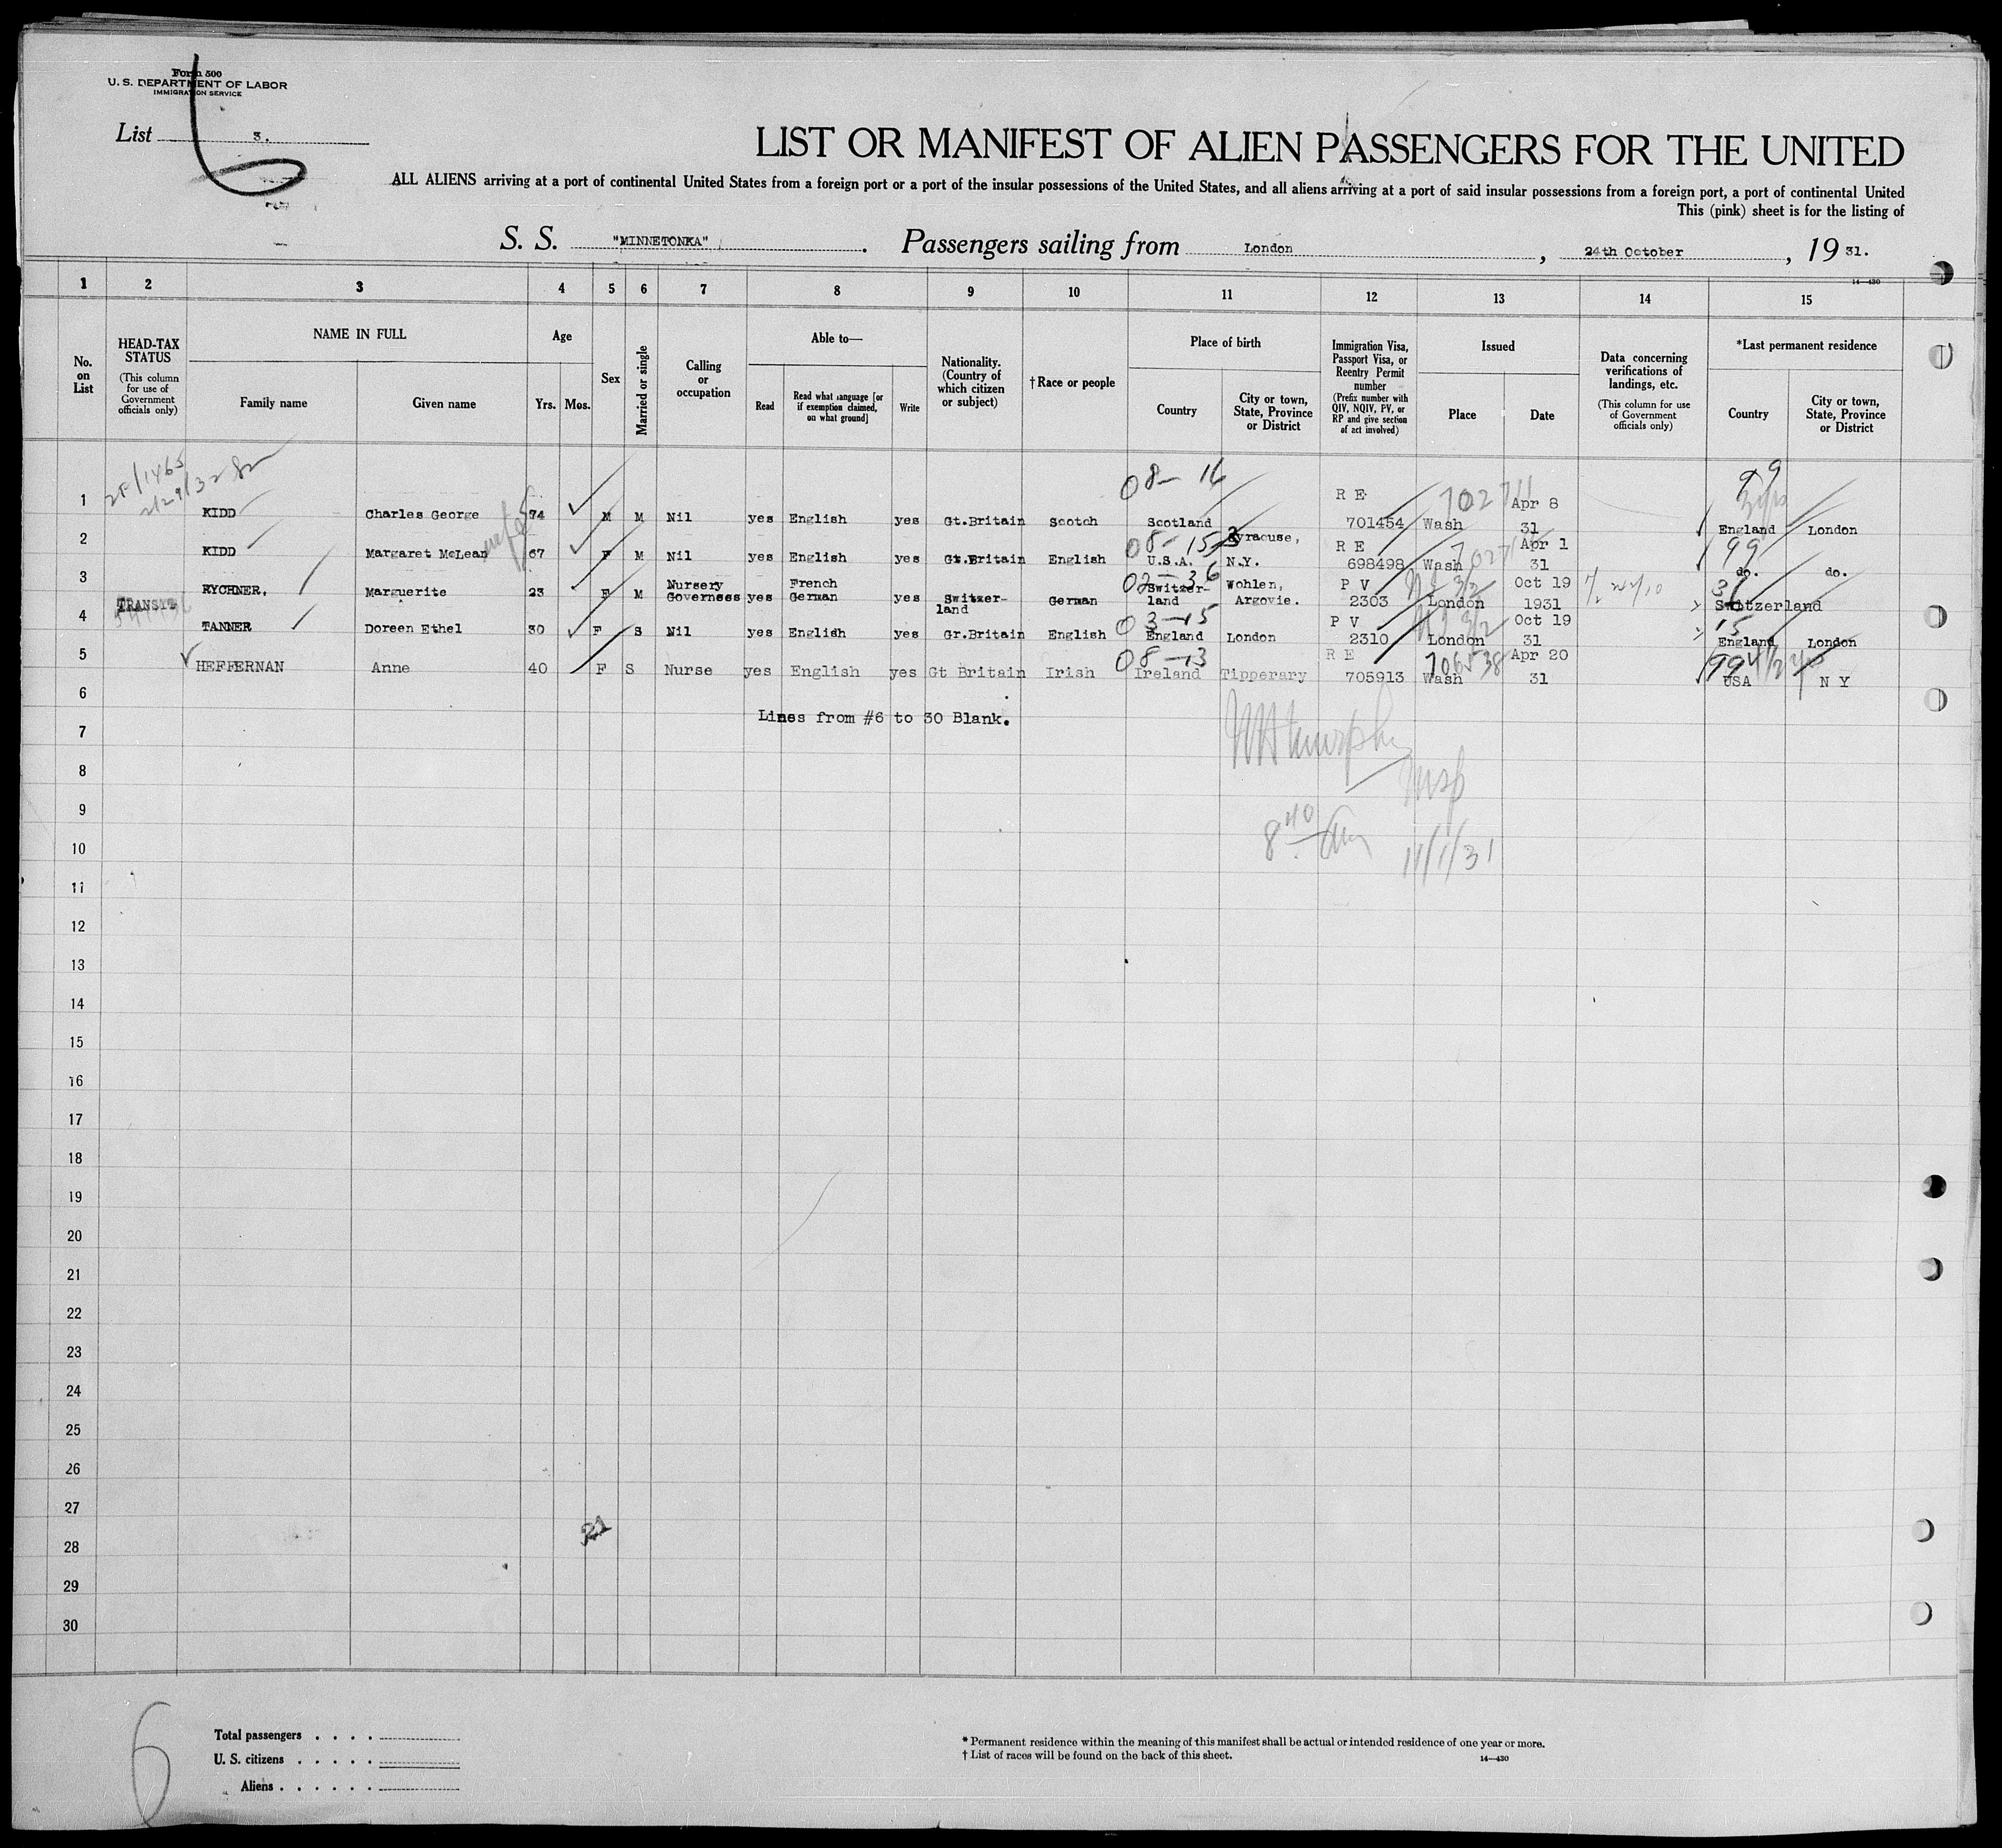 Form 500
U. S. DEPARTMENT OF LABOR
IMMIGRATION SERVICE
List 3.
LIST OR MANIFEST OF ALIEN PASSENGERS FOR THE UNITED
ALL ALIENS arriving at a port of continental United States from a foreign port or a port of the insular possessions of the United States, and all aliens arriving at a port of said insular possessions from a foreign port, a port of continental United
This (pink) sheet is for the listing of
S. S. "MINNETONKA". Passengers sailing from London, 24th October, 19 31.
14—430
1 2 3 4 5 6 7 8 9 10 11 12 13 14 15
No. on List
HEAD-TAX STATUS
(This column for use of Government officials only)
NAME IN FULL
Family name
Given name
Age
Yrs. Mos.
Sex
Married or single
Calling or occupation
Able to—
Read
Read what language [or if exemption claimed, on what ground]
Write
Nationality. (Country of which citizen or subject)
†Race or people
Place of birth
Country
City or town, State, Province or District
Immigration Visa, Passport Visa, or Reentry Permit number
(Prefix number with QIV, NQIV, PV, or RP and give section of act involved)
Issued
Place
Date
Data concerning verifications of landings, etc.
(This column for use of Government officials only)
*Last permanent residence
Country
City or town, State, Province or District
2/29/32
08— 16
99
1 KIDD Charles George 74 M M Nil yes English yes Gt.Britain Scotch Scotland R E 701454 Wash Apr 8 31 England London
08— 15
99
2 KIDD Margaret McLean 67 F M Nil yes English yes Gt.Britain English U.S.A. Syracuse, N.Y. R E 698498 Wash Apr 1 31 do. do.
02— 36
3 RYCHNER, Marguerite 23 F M Nursery Governess yes French German yes Switzer-land German Switzer-land Wohlen, Argovie. P V 2303 London Oct 19 1931 Switzerland
TRANSIT
03—15
15
4 TANNER Doreen Ethel 30 F S Nil yes English yes Gr.Britain English England London P V 2310 London Oct 19 31 England London
08—13
706538
99
5 HEFFERNAN Anne 40 F S Nurse yes English yes Gt Britain Irish Ireland Tipperary R E 705913 Wash Apr 20 31 USA N Y
6
Lines from #6 to 30 Blank.
7
Murphy
8
Insp
9
8 40 Am
10
11/1/31
11
12
13
14
15
16
17
18
19
20
21
22
23
24
25
26
27
28
29
30
6
Total passengers . . . .
U. S. citizens . . . . .
Aliens . . . . . .
* Permanent residence within the meaning of this manifest shall be actual or intended residence of one year or more.
† List of races will be found on the back of this sheet.
14—430